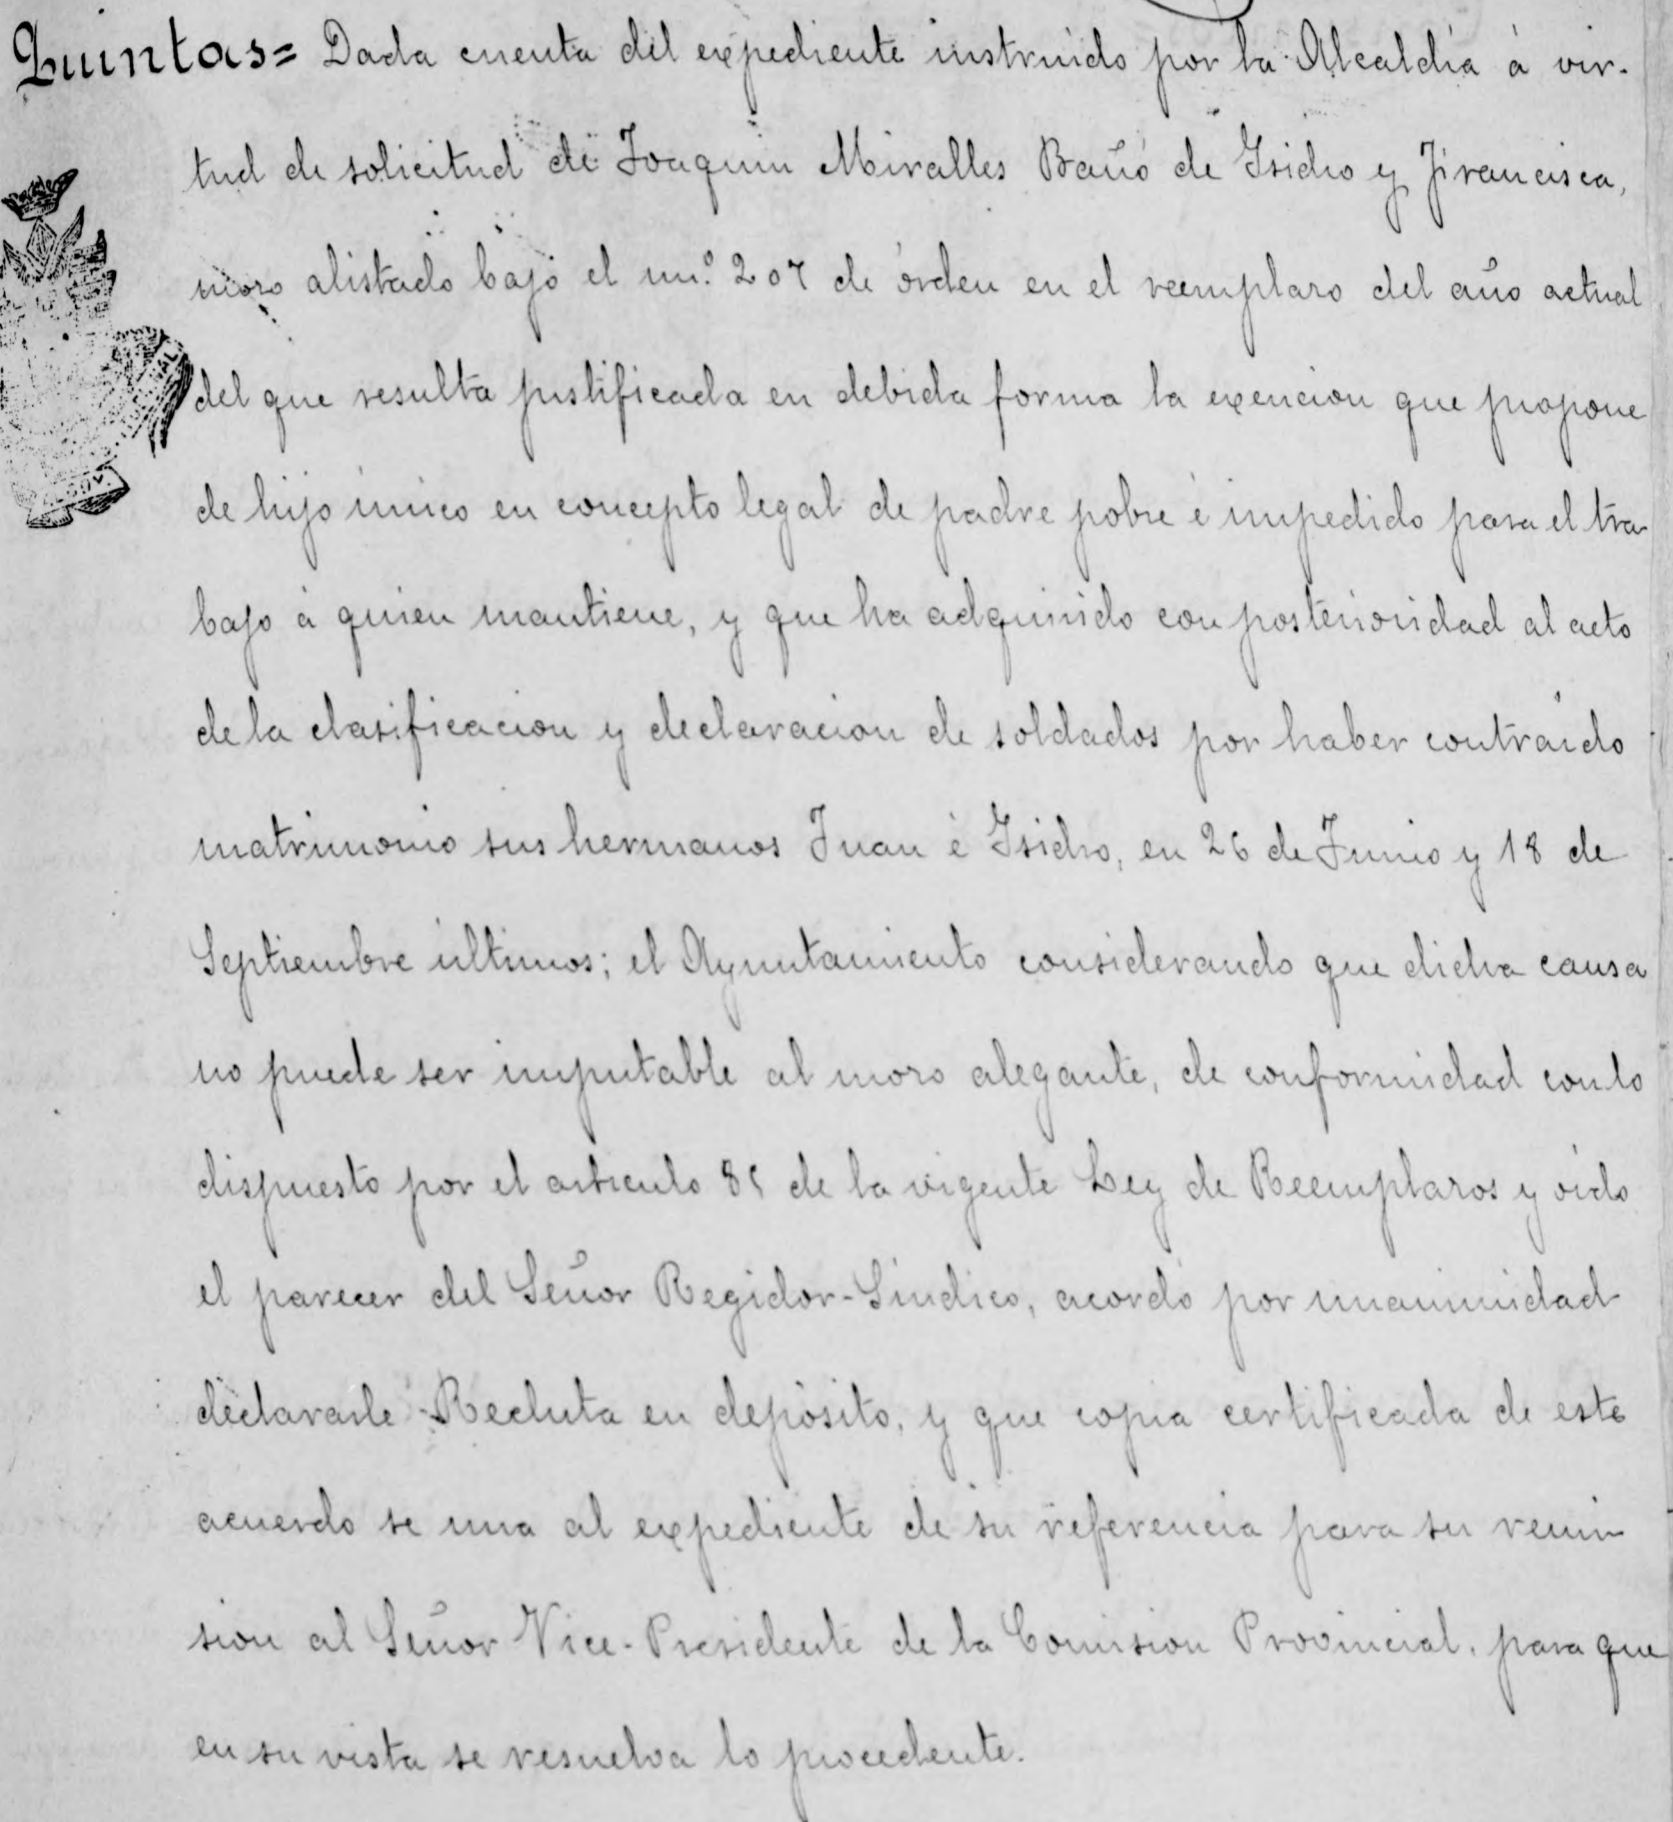 Quintas= Dada cuenta del expediente instruido por la Alcaldía á vir-
tud de solicitud de Joaquin Miralles Bañó de Isidro y Francisca,
mozo alistado bajo el nu.º 207 de órden en el reemplazo del año actual
del que resulta justificada en debida forma la exencion que propone
de hijo único en concepto legal de padre pobre é impedido para el tra-
bajo á quien mantiene, y que ha adquirido con posterioridad al acto
de la clasificacion y declaracion de soldados por haber contraido
matrimonio sus hermanos Juan é Isidro, en 26 de Junio y 18 de
Septiembre últimos; el Ayuntamiento considerando que dicha causa
no puede ser imputable al mozo alegante, de conformidad con lo
dispuesto por el artículo 85 de la vigente Ley de Reemplazos y oido
el parecer del Señor Regidor-Síndico, acordó por unanimidad
declararle Recluta en depósito, y que copia certificada de este
acuerdo se una al expediente de su referencia para su remi-
sion al Señor Vice-Presidente de la Comision Provincial, para que
en su vista se resuelva lo procedente.